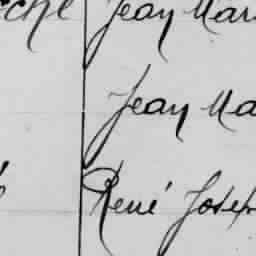 Jean Mar
Jean Ma
René Josep